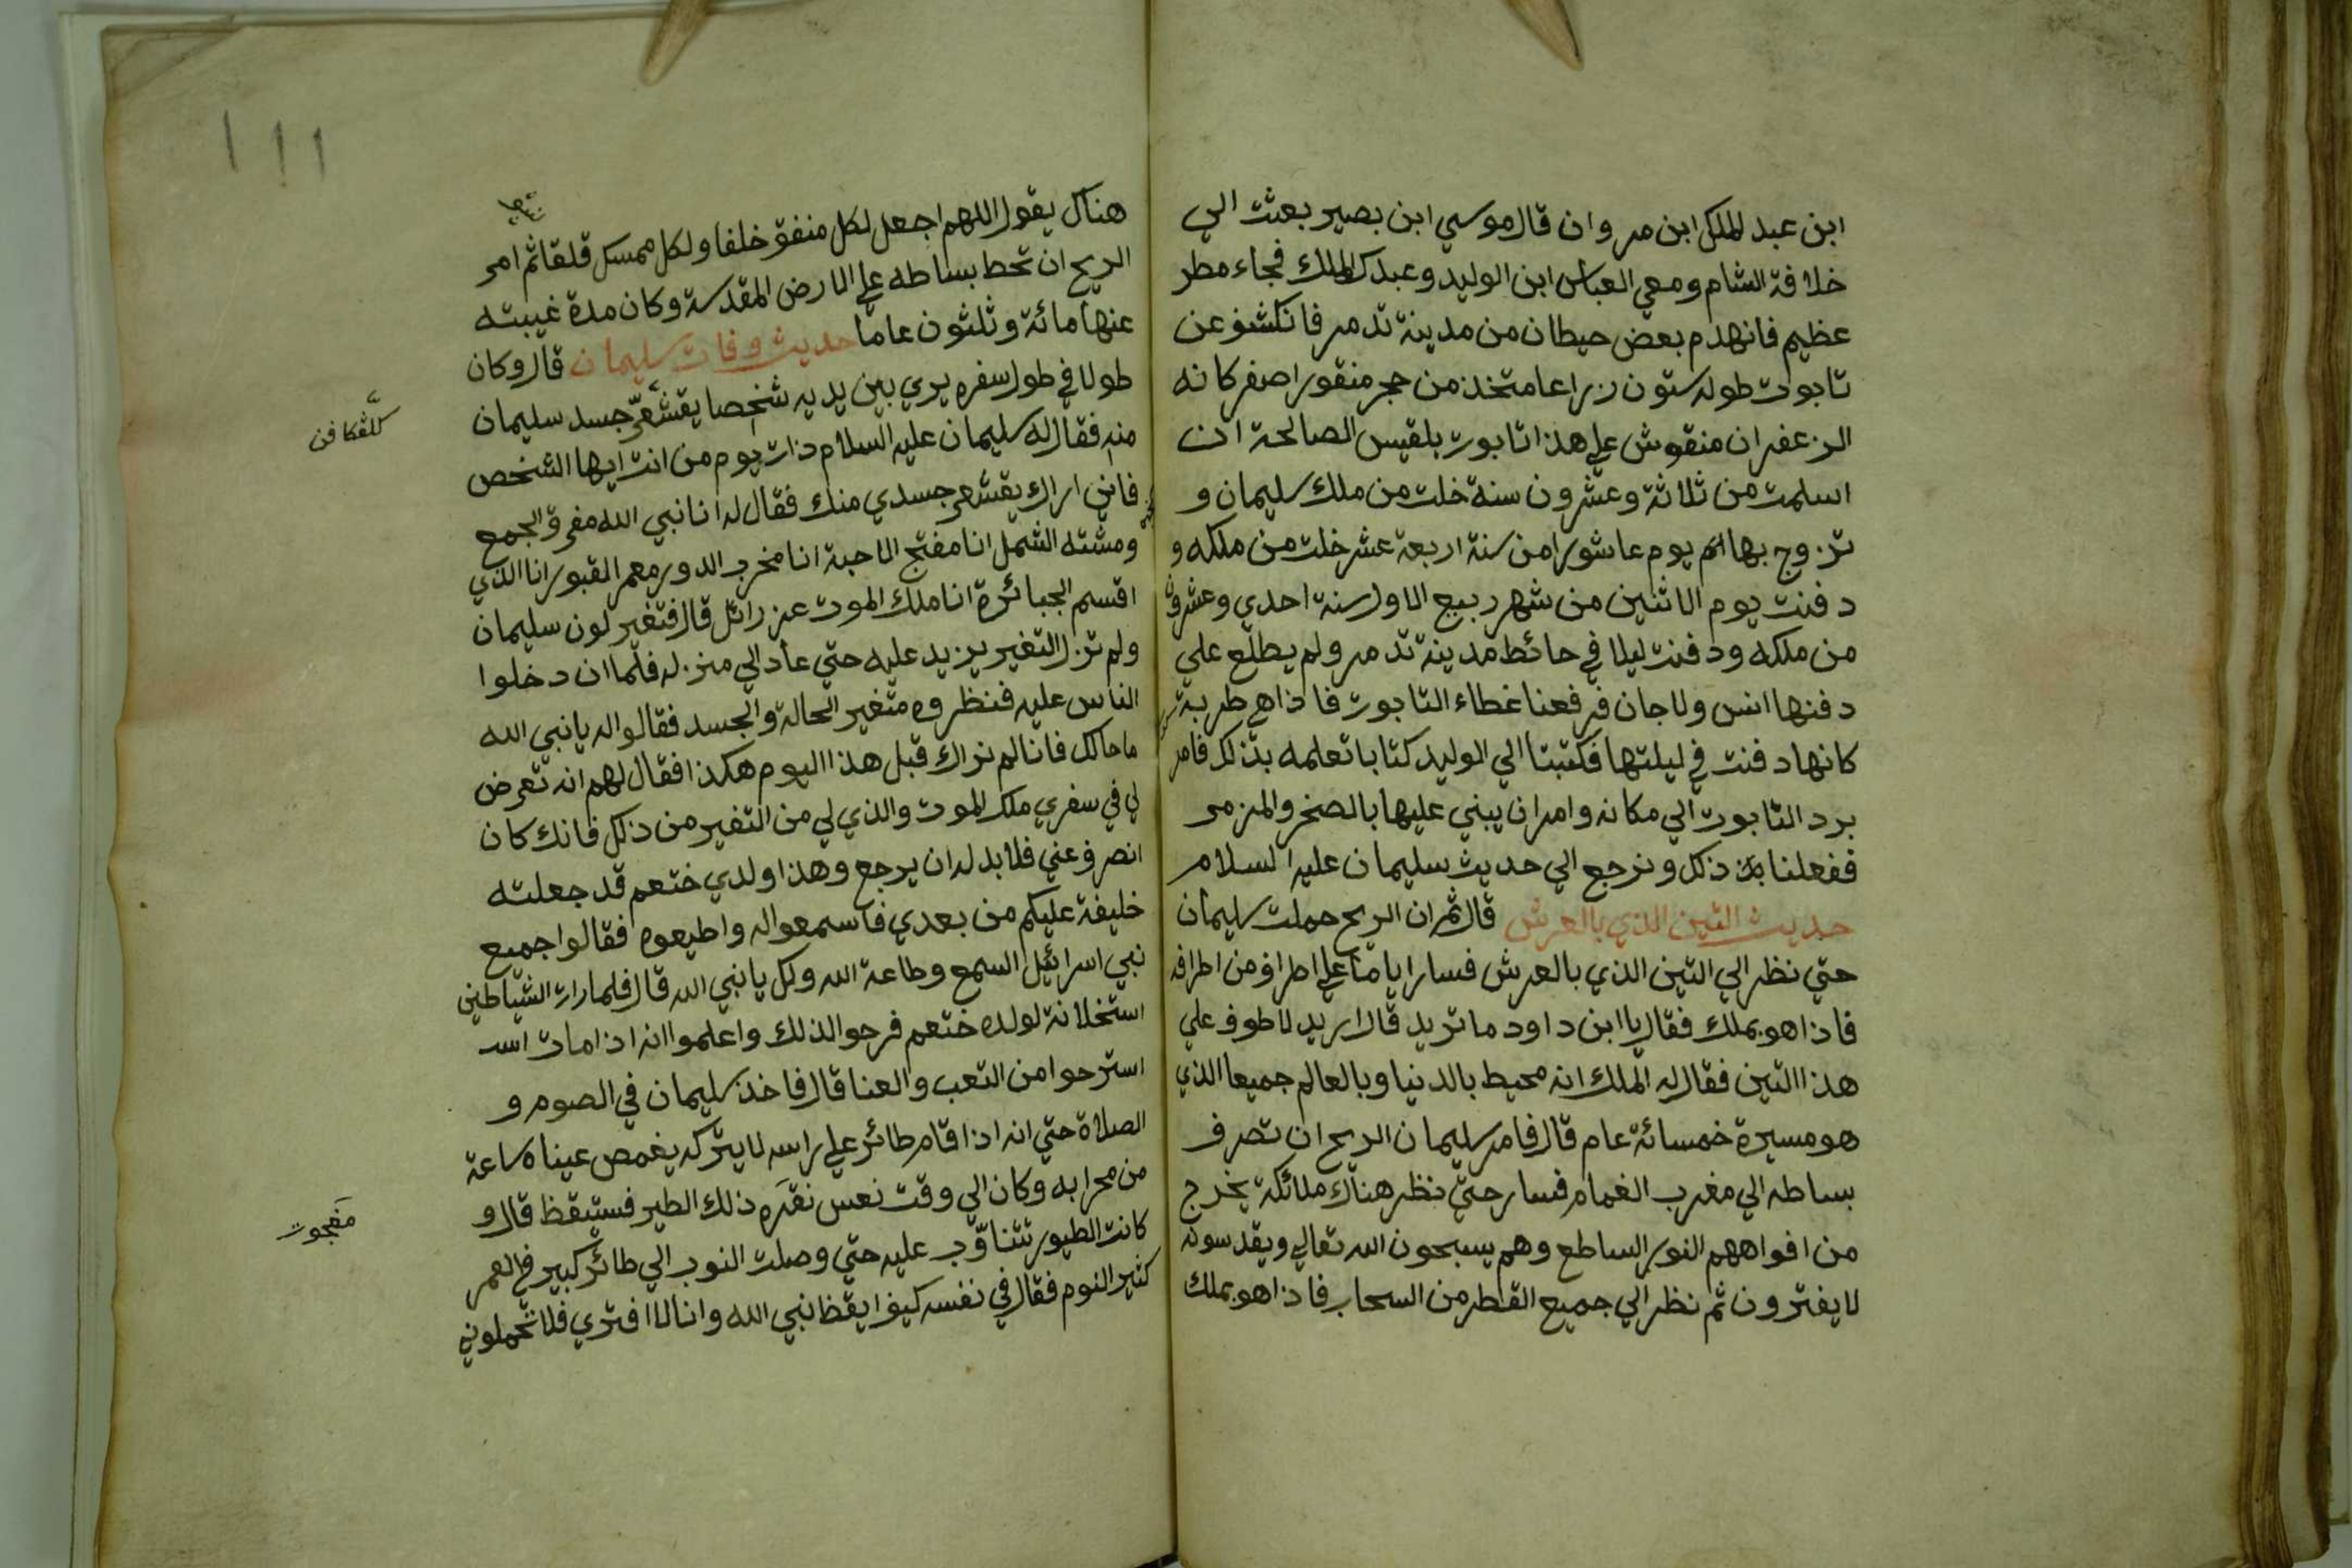 ابن عبد الملك ابن مروان قال موسي ابن بصير بعثت الي
خلافة الشام ومعي العباس ابن الوليد وعبدك الملك فجاء مطر
عظيم فانهدم بعض حيطان من مدينة تدمر فانكشف عن
تابوت طوله ستون زراعا متخذ من حجر منقور اصفر كانه
الزعفران منقوش علي هذا تابوت بلقيس الصالحة ان
اسلمت من ثلاثة وعشرون سنة خلت من ملك سليمان و
تزوج بها يوم عاشورا من سنة اربعة عشر خلت من ملكه و
دفنت يوم الاثنين من شهر ربيع الاول سنة احدي وعشرون
من ملكه ودفنت ليلا في حائط مدينة تدمر ولم يطلع علي
دفنها انس ولا جان فرفعنا غطاء التابوت فاذا هي طربة
كانها دفنت في ليلتها فكتبتا الي الوليد كتابا تعلمه بذلك فامر
برد التابوت الي مكانه وامر ان يبني عليها بالصخر والمزمر
ففعلنا ذلك ونرجع الي حديث سليمان عليه السلام
حديث التين الذي بالعرش قال ثم ان الريح حملت سليمان
حتي نظر الي التين الذي بالعرش فسار اياما علي اطراف من اطرافه
فاذا هو بملك فقال يا ابن داود ما تريد قال اريد لاطوف علي
هذا التين فقال له الملك انه محيط بالدنيا وبالعالم جميعا الذي
هو مسيرة خمسائة عام قال فامر سليمان الريح ان تصرف
بساطه الي مغرب الغمام فسار حتي نظر هناك ملائكة يخرج
من افواههم النور الساطع وهم يسبحون الله تعالي ويقدسونه
لا يفترون ثم نظر الي جميع القطر من السحاب فاذا هو بملك
هناك يقول اللهم اجعل لكل منفق خلفا ولكل ممسك قلقا ثم امر
الريح ان تحط بساطه علي الارض المقدسة وكان مدة غيبته
عنها مائة وثلثون عاما حديث وفات سليمان قال وكان
طولا في طول سفره يري بين يديه شخصا يقشعر جسد سليمان
منه فقال له سليمان عليه السلام ذات يوم من انت ايها الشخص
فاني اراك يقشعر جسدي منك فقال له انا نبي الله مفرق الجمع
ومشته الشمل انا مفتج الاحبة انا مخرب الدور معمر القبور انا الذي
اقسم الجبائرة انا ملك الموت عزرائل قال فتغير لون سليمان
ولم تزل التغير يزيد عليه حتي عاد الي منزله فلما ان دخلوا
الناس عليه فنظروه متغير الحالة والجسد فقالوا له يا نبي الله
ما حالك فانا لم نراك قبل هذا اليوم هكذا فقال لهم انه تعرض
لي في سفري ملك الموت والذي لي من التغير من ذلك فانك كان
انصرف عني فلا بد له ان يرجع وهذا ولدي ختعم قد جعلته
خليفة عليكم من بعدي فاسمعوا له واطيعوه فقالوا جميع
نبي اسرائيل السمع وطاعة الله ولك يا نبي الله قال فلما رات الشياطين
استخلانة لولده ختعم فرحوا لذلك واعلموا انه اذا مات اسد
استرحوا من التعب والعنا قال فاخذ سليمان في الصوم و
الصلاة حتي انه اذا قام طائر علي راسه لا يتركه يغمص عيناه ساعة
من محرابه وكان الي وقت نعس نقره ذلك الطير فستيقظ قال و
كانت الطيور تتناوب عليه حتي وصلت النوب الي طائر كبير في العمر
كثير النوم فقال في نفسه كيف ايقظ نبي الله وانا لا افتري فلا تحملوني
كللڠكافن
مڠجوت